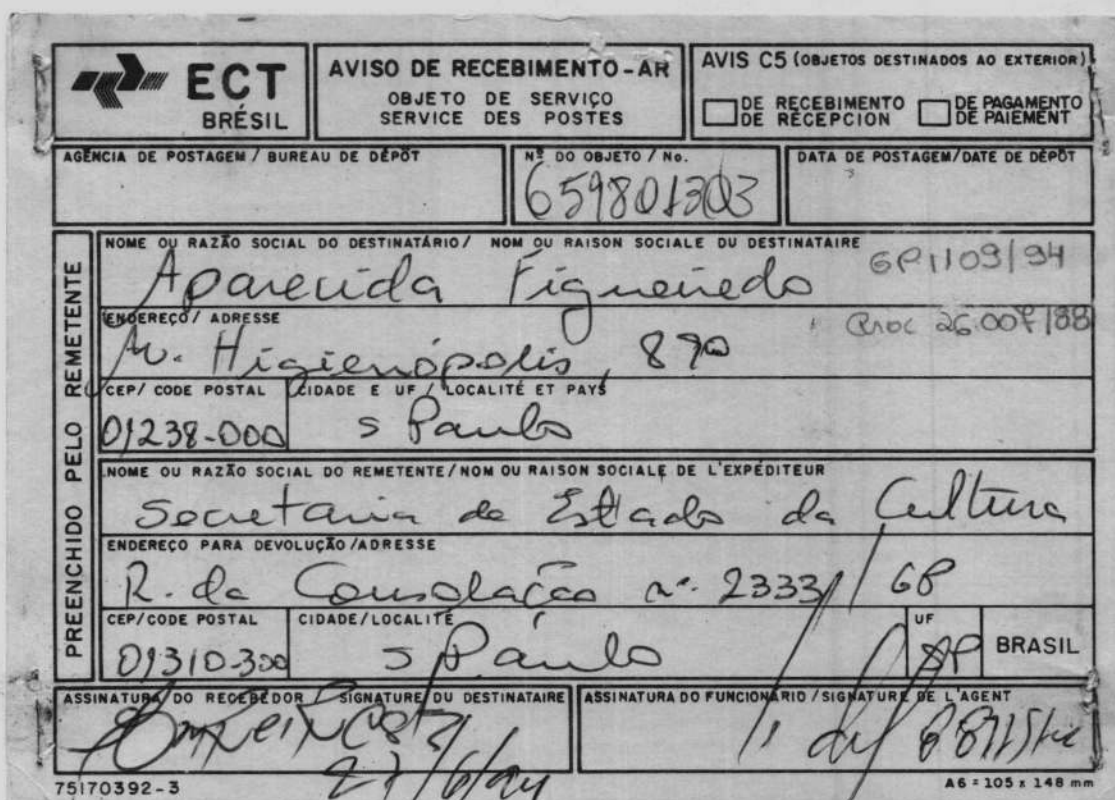 ECT
BRÉSIL
AVISO DE RECEBIMENTO-AR
OBJETO DE SERVIÇO
SERVICE DES POSTES
AVIS C5 (OBJETOS DESTINADOS AO EXTERIOR)
DE RECEBIMENTO
DE RÉCEPCION
DE PAGAMENTO
DE PAIEMENT
AGÊNCIA DE POSTAGEM / BUREAU DE DÉPÔT
Nº DO OBJETO / No.
659801303
DATA DE POSTAGEM/DATE DE DÉPÔT
PREENCHIDO PELO REMETENTE
NOME OU RAZÃO SOCIAL DO DESTINATÁRIO / NOM OU RAISON SOCIALE DU DESTINATAIRE
GP1109/94
Aparecida Figueiredo
ENDEREÇO / ADRESSE
Proc 26.007/88
Av. Higienópolis, 890
CEP/ CODE POSTAL
CIDADE E UF / LOCALITÉ ET PAYS
01238-000
S Paulo
NOME OU RAZÃO SOCIAL DO REMETENTE/NOM OU RAISON SOCIALE DE L'EXPÉDITEUR
Secretaria de Estado da Cultura
ENDEREÇO PARA DEVOLUÇÃO/ADRESSE
R. da Consolação nº 2333 / GP
CEP/CODE POSTAL
CIDADE/LOCALITÉ
UF
01310-300
S Paulo
SP
BRASIL
ASSINATURA DO RECEBEDOR / SIGNATURE DU DESTINATAIRE
ASSINATURA DO FUNCIONÁRIO / SIGNATURE DE L'AGENT
27/6/94
75170392-3
A6 = 105 x 148 mm